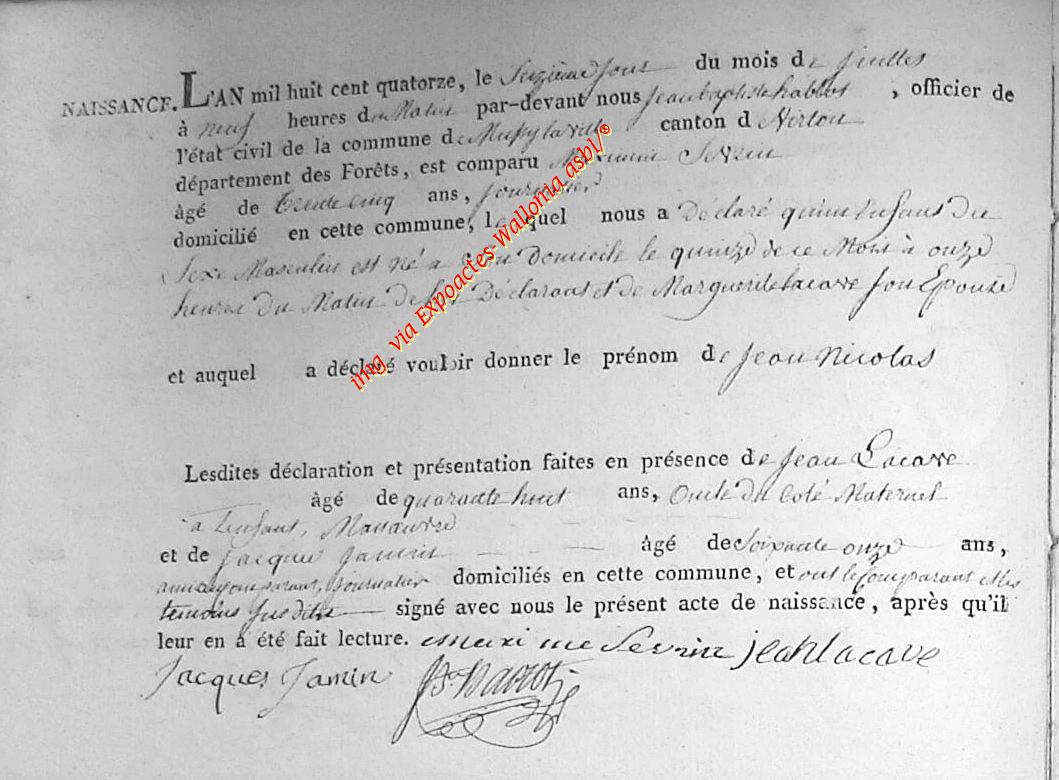 NAISSANCE. L'AN mil huit cent quatorze, le Seizieme Jour du mois de Juillet
à neuf heures du Matin par-devant nous Jean baptiste , officier de
l'état civil de la commune de Mussy la ville canton d Virton
département des Forêts, est comparu Maximin Sevrin
âgé de trente cinq ans, journalier
domicilié en cette commune, lequel nous a Déclaré qu'un Enfant Du
Sexe Masculin est né a Son Domicile le quinze de ce Mois à onze
heures du Matin de lui Déclarant et de Marguerite Lacave Son Epouse
et auquel a déclaré vouloir donner le prénom de Jean Nicolas
Lesdites déclaration et présentation faites en présence de Jean Lacave
âgé de quarante huit ans, Oncle du Coté Maternel
a l'enfant, Manœuvre
et de Jacque Jamin âgé de Soixante onze ans,
ami du Comparant, Journalier domiciliés en cette commune, et ont le Comparant et les
temoins Susdits signé avec nous le présent acte de naissance, après qu'il
leur en a été fait lecture. maxi me Sevrin jean lacave
Jacques Jamin
img via Expoactes-Walloma asbl/®